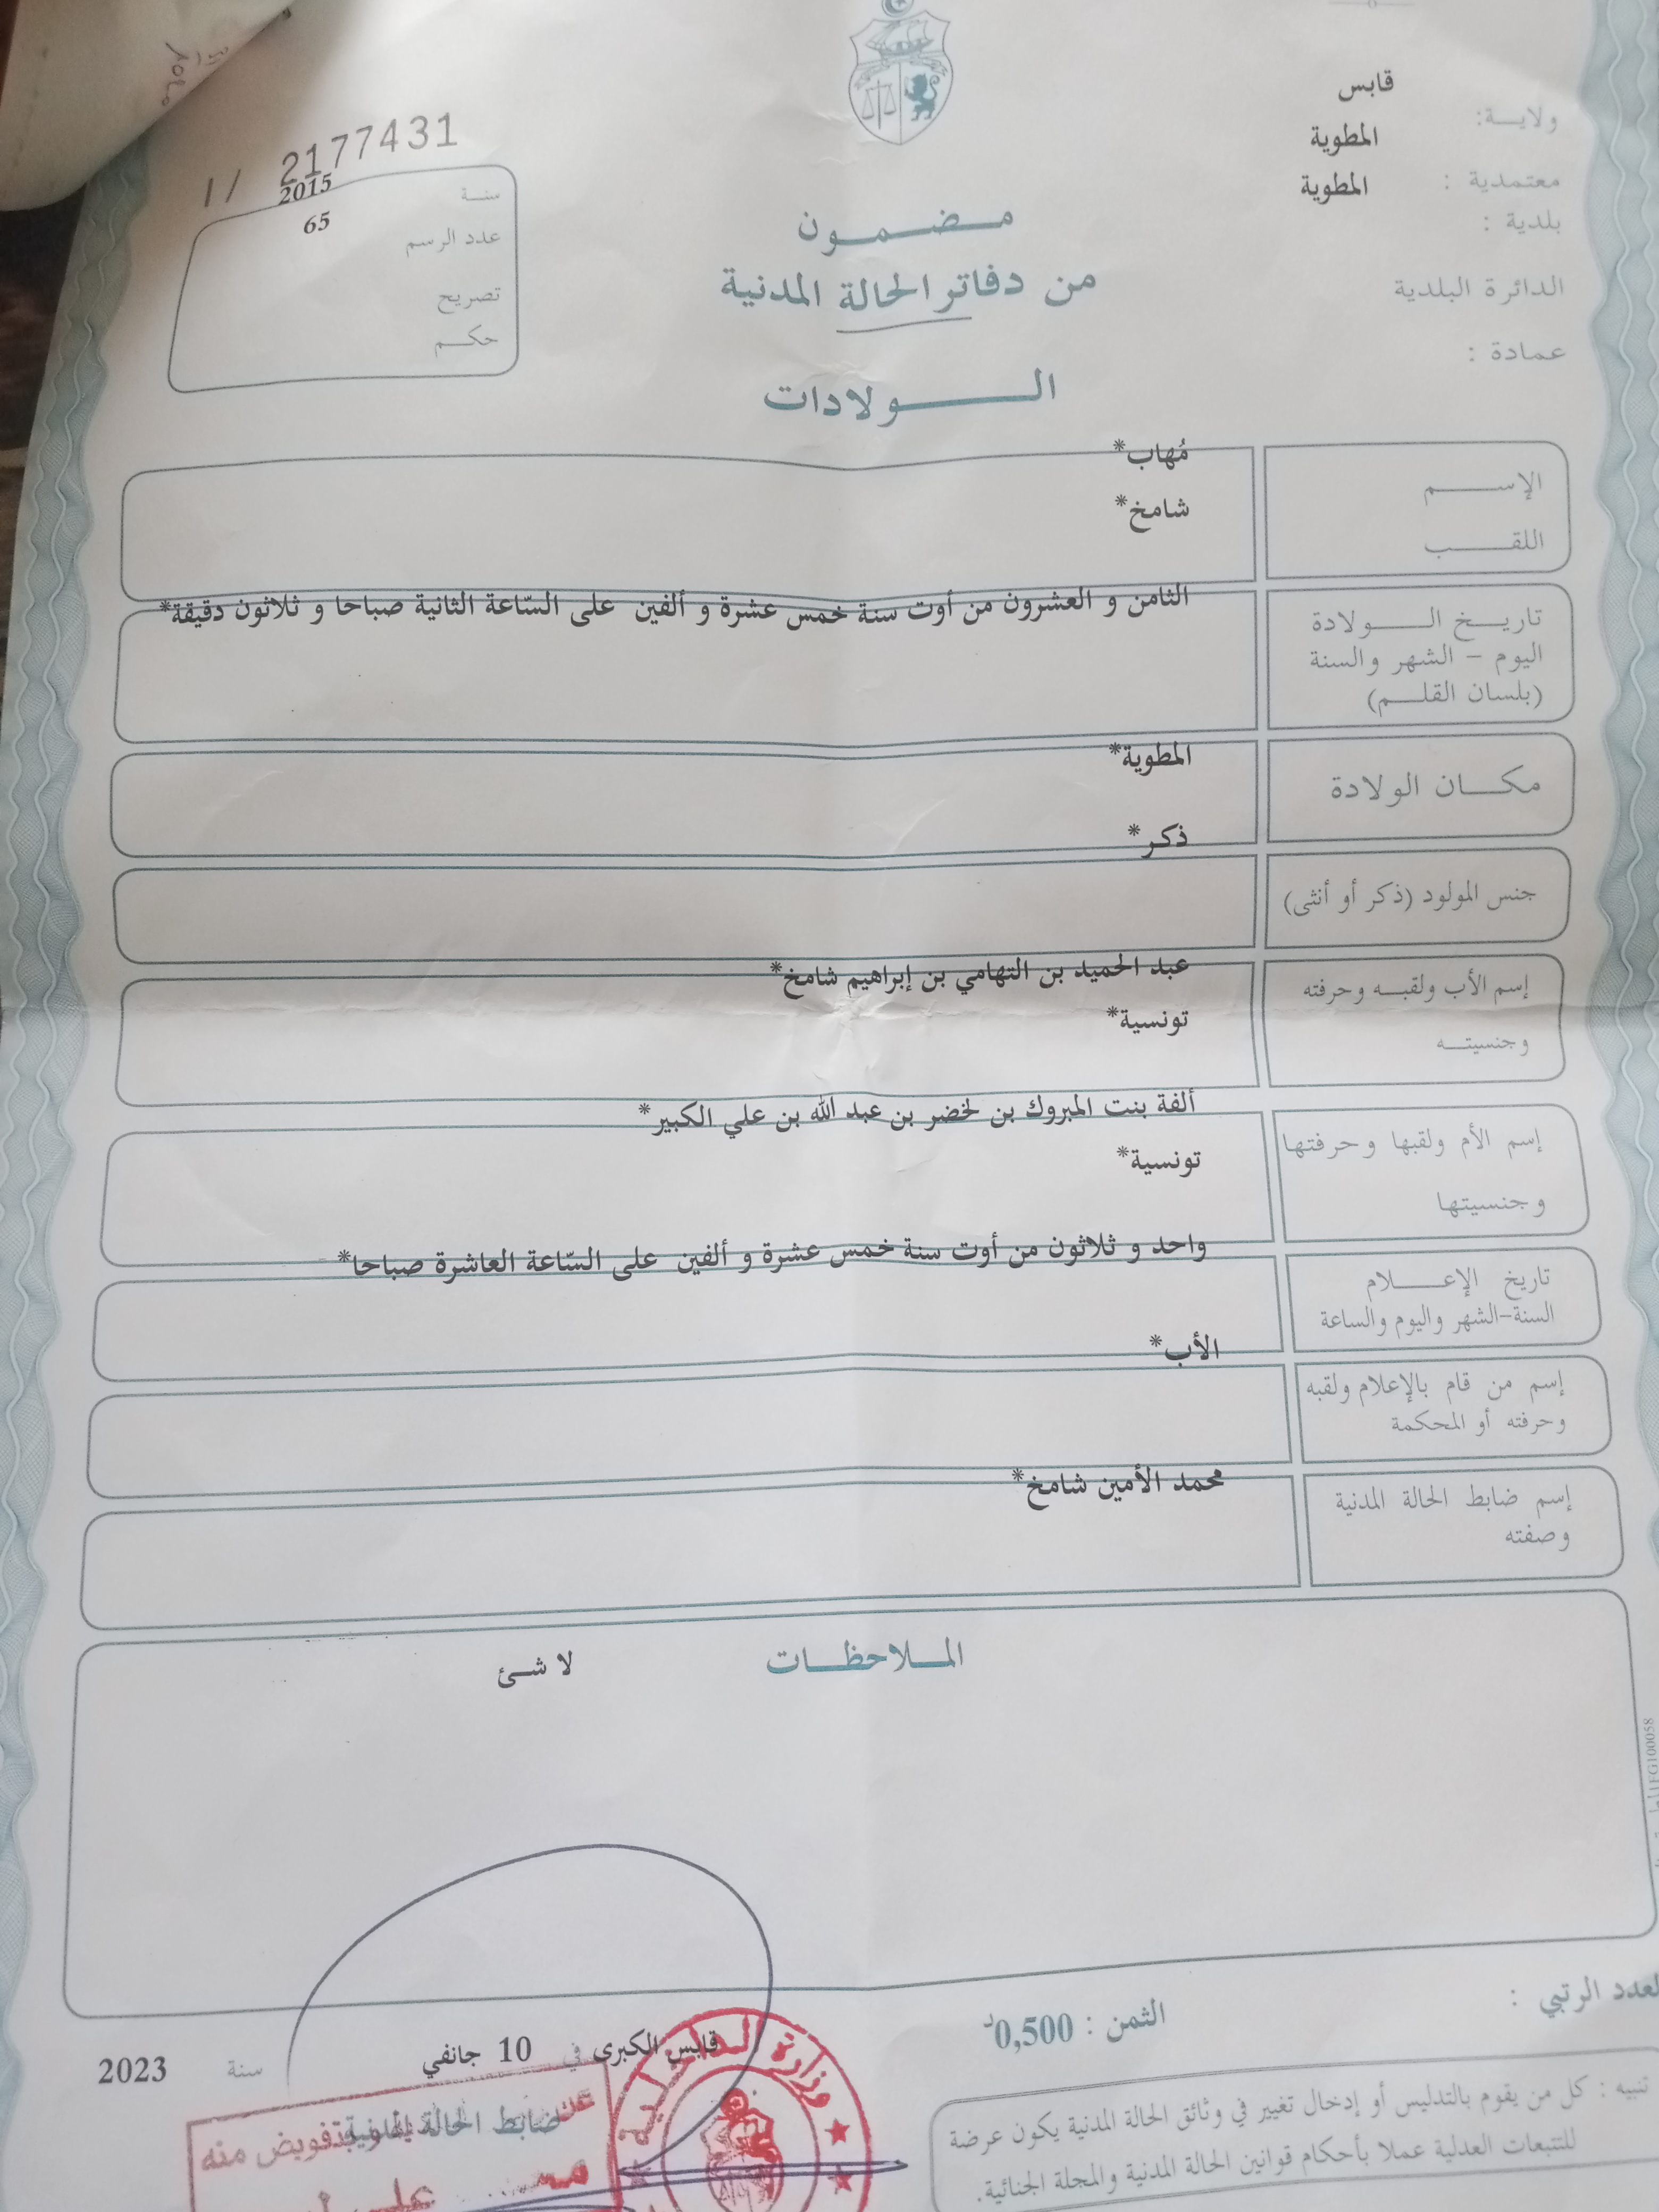 ولاية: قابس
معتمدية : المطوية
بلدية : المطوية
الدائرة البلدية
عمادة :
1/ 2177431
سنة 2015
عدد الرسم 65
تصريح
حكم
مضمون
من دفاتر الحالة المدنية
الولادات
الإسم مُهاب*
اللقب شامخ*
تاريخ الولادة
اليوم - الشهر والسنة
(بلسان القلم)
الثامن و العشرون من أوت سنة خمس عشرة و ألفين على السّاعة الثانية صباحا و ثلاثون دقيقة*
مكان الولادة
المطوية*
جنس المولود (ذكر أو أنثى)
ذكر*
إسم الأب ولقبه وحرفته
وجنسيته
عبد الحميد بن التهامي بن إبراهيم شامخ*
تونسية*
إسم الأم ولقبها وحرفتها
وجنسيتها
ألفة بنت المبروك بن لخضر بن عبد الله بن علي الكبير*
تونسية*
تاريخ الإعلام
السنة-الشهر واليوم والساعة
واحد و ثلاثون من أوت سنة خمس عشرة و ألفين على السّاعة العاشرة صباحا*
إسم من قام بالإعلام ولقبه
وحرفته أو المحكمة
الأب*
إسم ضابط الحالة المدنية
وصفته
محمد الأمين شامخ*
الملاحظات
لا شئ
العدد الرتبي :
الثمن : 0,500د
قابس الكبرى في 10 جانفي سنة 2023
ضابط الحالة المدنية
بتفويض منه
وزارة الداخلية
تنبيه : كل من يقوم بالتدليس أو إدخال تغيير في وثائق الحالة المدنية يكون عرضة
للتتبعات العدلية عملا بأحكام قوانين الحالة المدنية والمجلة الجنائية.